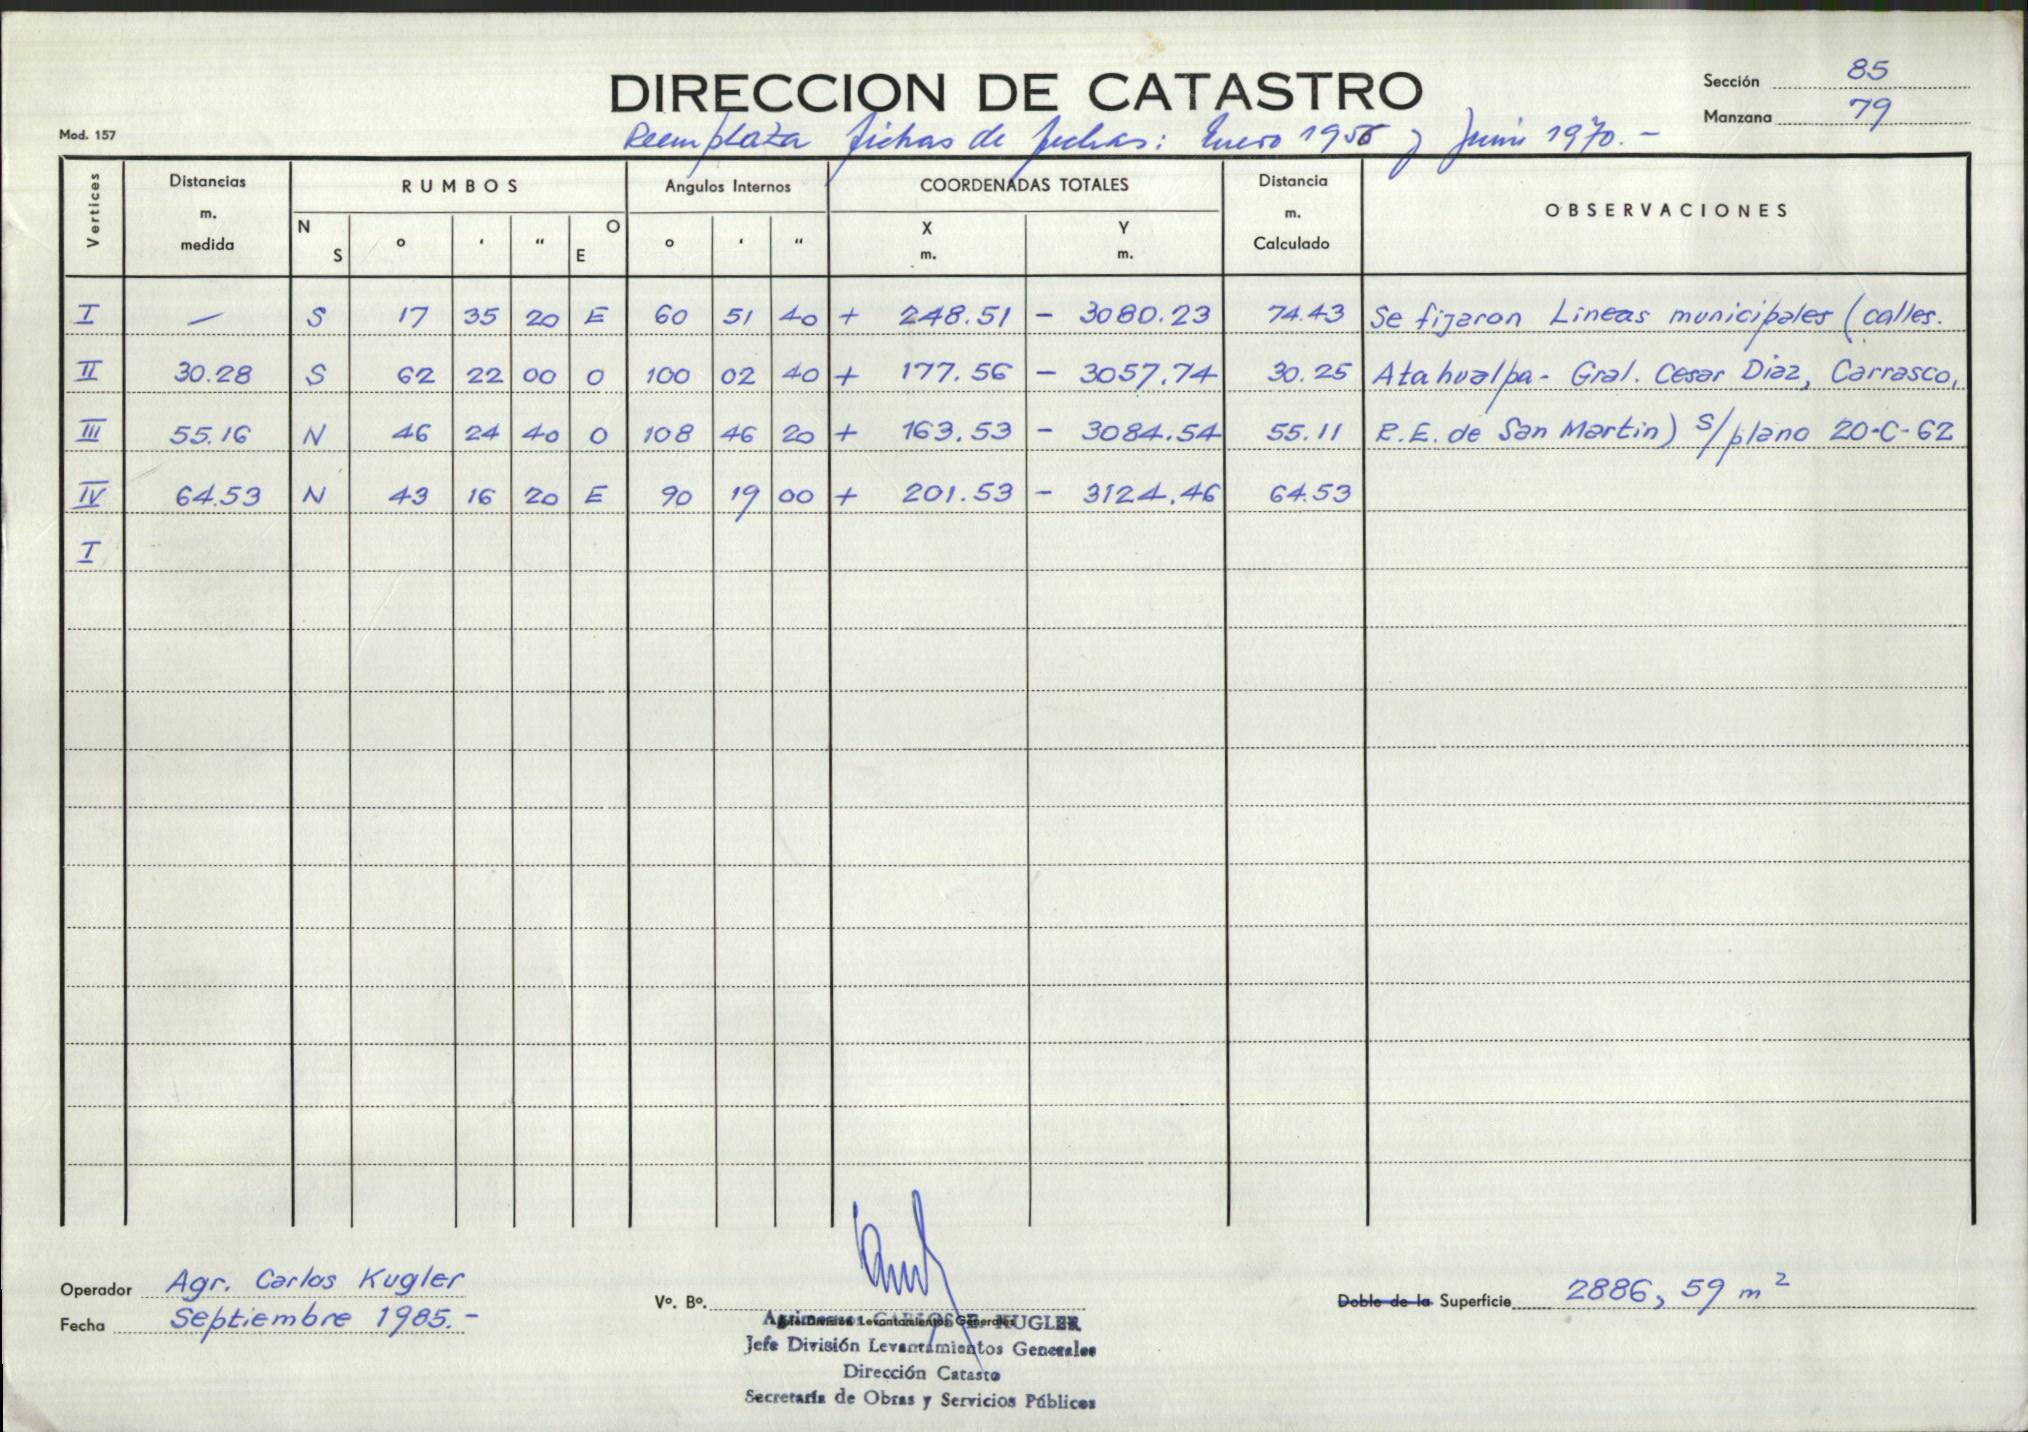 DIRECCION DE CATASTRO
Sección 85
Manzana 79
Mod. 157
Reemplaza fichas de fechas: Enero 1956 y Junio 1970.-
Vertices Distancias m. medida RUMBOS N S ° ' " O E Angulos Internos ° ' " COORDENADAS TOTALES X m. Y m. Distancia m. Calculado OBSERVACIONES
I — S 17 35 20 E 60 51 40 + 248.51 - 3080.23 74.43 Se fijaron Lineas municipales (calles.
II 30.28 S 62 22 00 O 100 02 40 + 177.56 - 3057.74 30.25 Atahualpa - Gral. Cesar Diaz, Carrasco,
III 55.16 N 46 24 40 O 108 46 20 + 163.53 - 3084.54 55.11 R.E. de San Martin) s/plano 20-C-62
IV 64.53 N 43 16 20 E 90 19 00 + 201.53 - 3124.46 64.53
I
Operador Agr. Carlos Kugler
Fecha Septiembre 1985.-
Vº. Bº.
Agrimensor CARLOS E. KUGLER
Jefe División Levantamientos Generales
Jefe División Levantamientos Generales
Dirección Catasto
Secretaría de Obras y Servicios Públicos
Doble de la Superficie 2886,59 m²